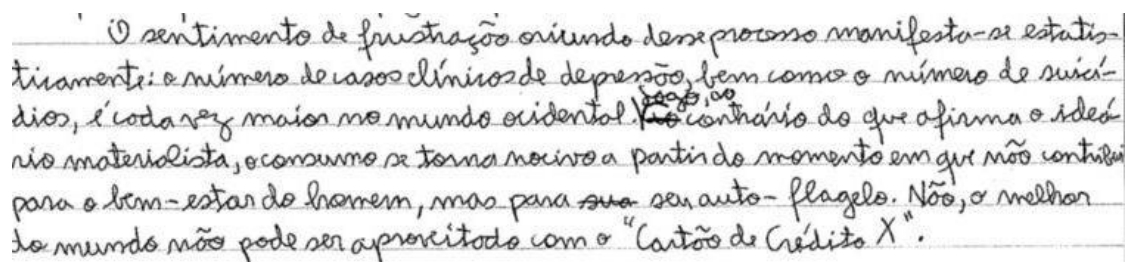 O sentimento de frustração oriundo desse processo manifesta-se estatis-
ticamente: o número de casos clínicos de depressão, bem como o número de suicí-
dios, é cada vez maior no mundo ocidental. Logo, ao contrário do que afirma o ideá
rio materialista, o consumo se torna nocivo a partir do momento em que não contribui
para o bem-estar do homem, mas para sua seu auto-flagelo. Não, o melhor
do mundo não pode ser aproveitado com o "Cartão de Crédito X".